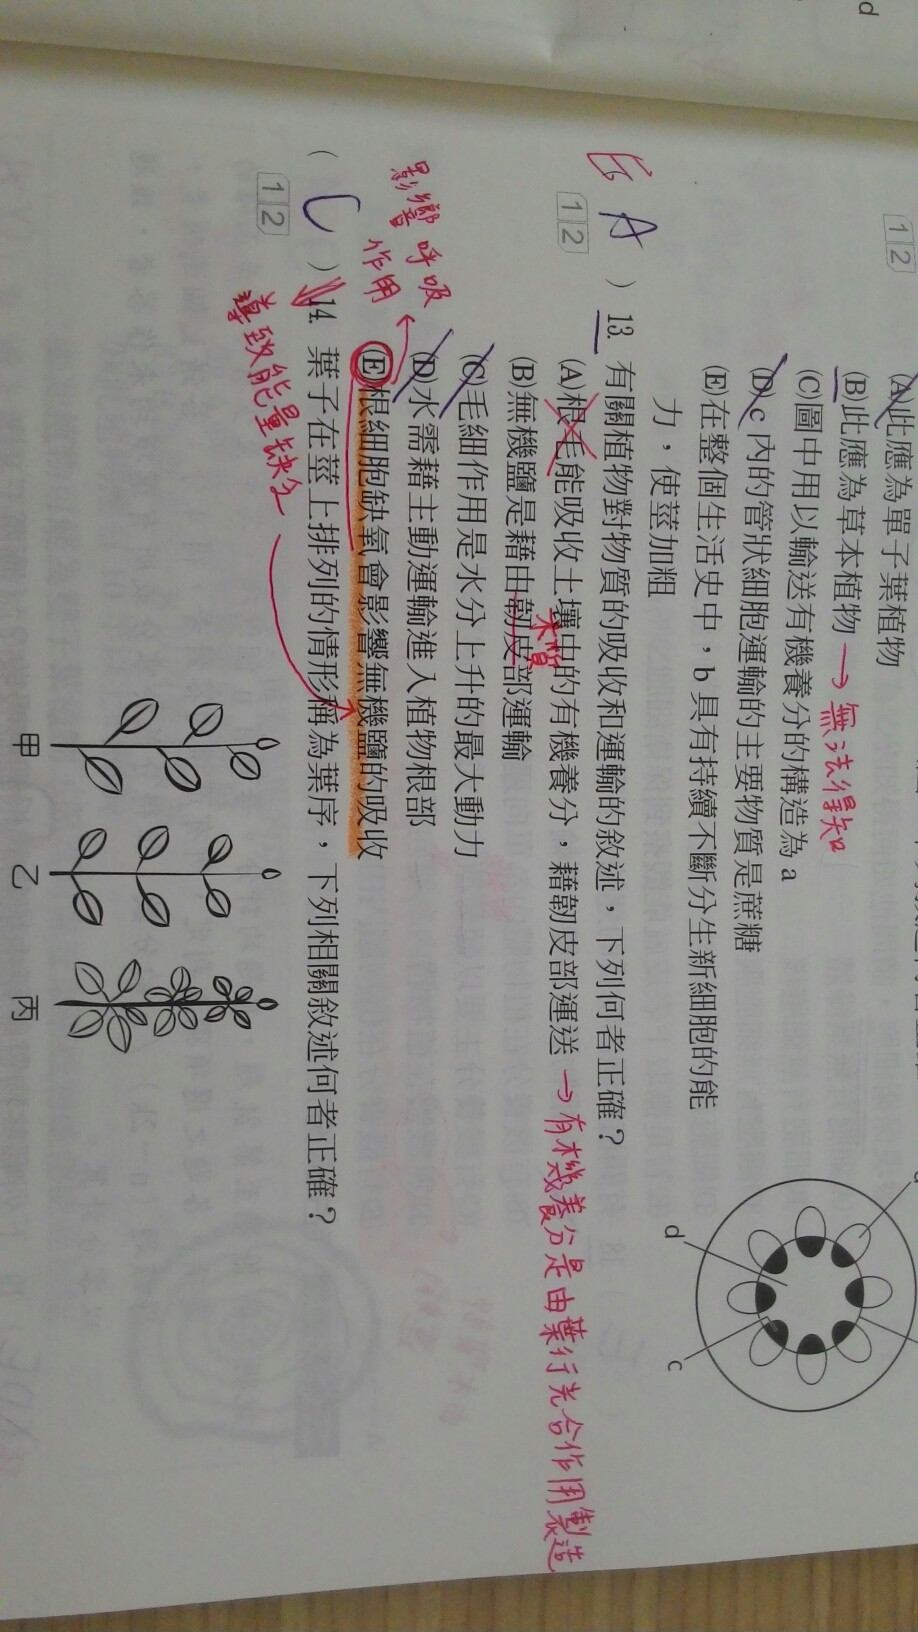 d
12
(A)此應為單子葉植物
(B)此應為草本植物 → 無法得知
(C)圖中用以輸送有機養分的構造為 a
(D) c 內的管狀細胞運輸的主要物質是蔗糖
(E)在整個生活史中，b 具有持續不斷分生新細胞的能
力，使莖加粗
d
c
A ) 13. 有關植物對物質的吸收和運輸的敘述，下列何者正確？
12
(A)根毛能吸收土壤中的有機養分，藉韌皮部運送 → 有機養分是由葉行光合作用製造
木質
(B)無機鹽是藉由韌皮部運輸
(C)毛細作用是水分上升的最大動力
(D)水需藉主動運輸進入植物根部
影響呼吸
作用
(E)根細胞缺氧會影響無機鹽的吸收
導致能量缺乏
( C ) 14. 葉子在莖上排列的情形稱為葉序，下列相關敘述何者正確？
12
甲
乙
丙